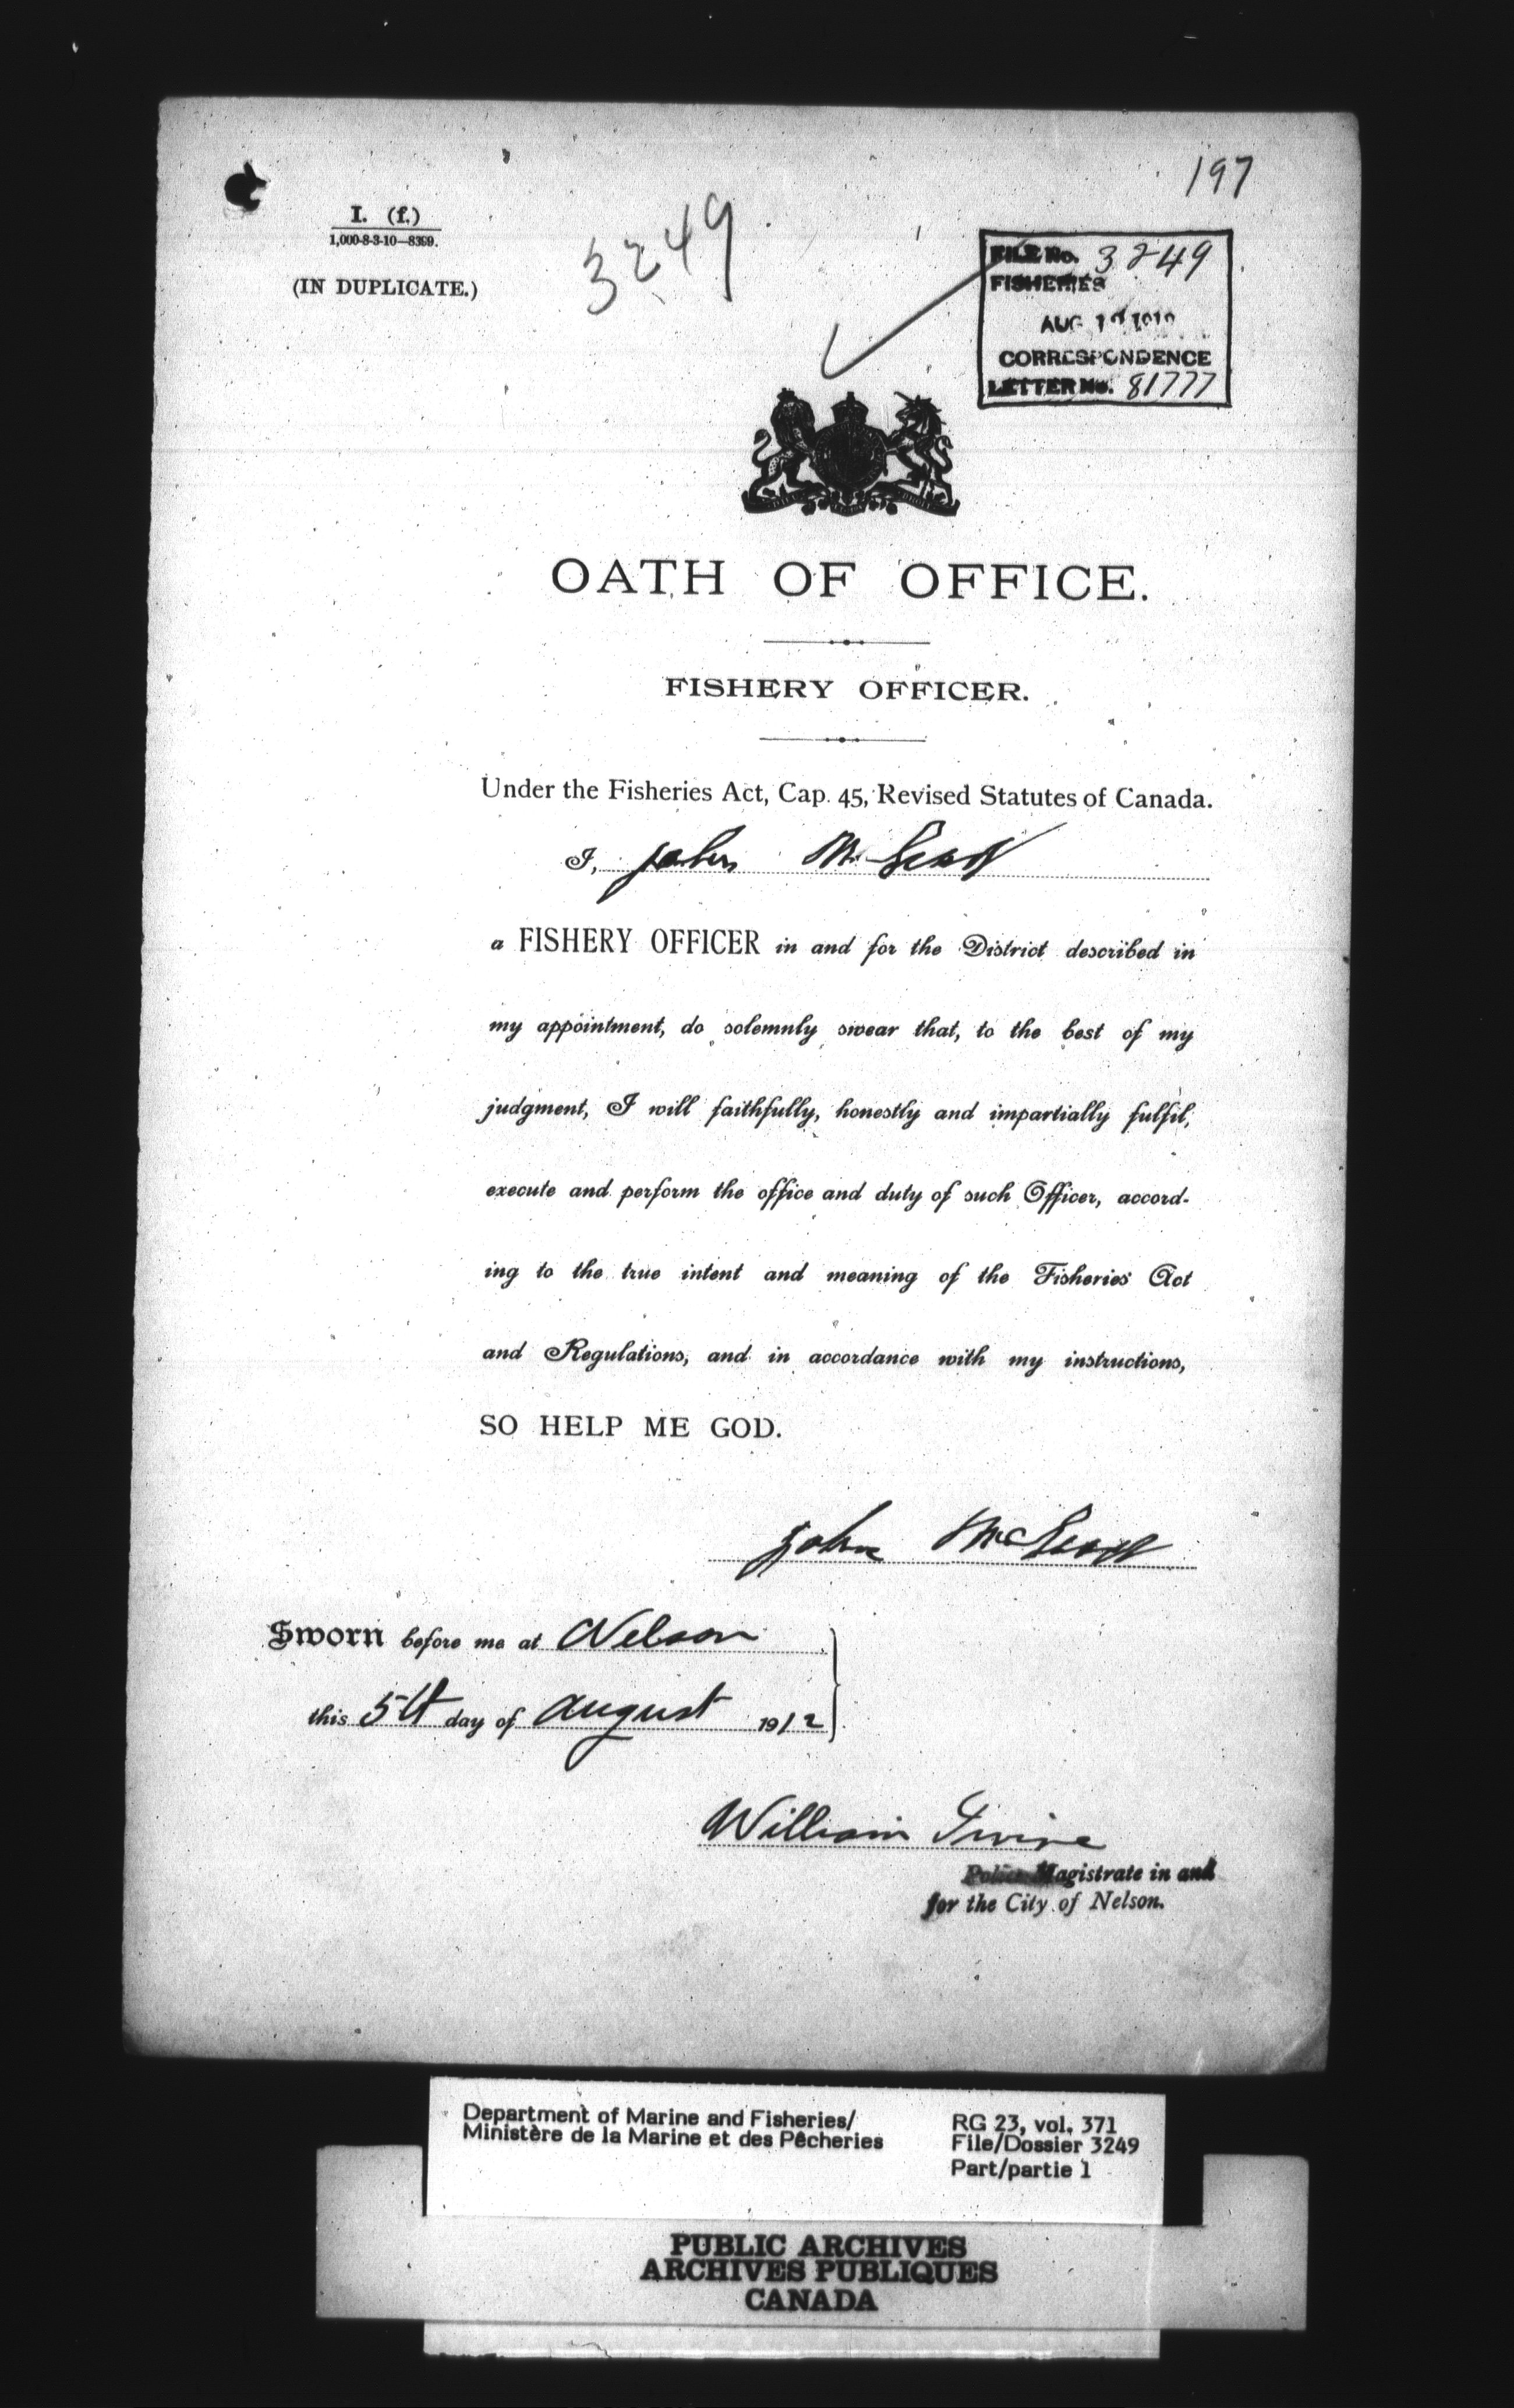 197
I. (f.)
1,000-8-3-10—8399.
(IN DUPLICATE.)
3249
FILE No. 3249
FISHERIES
AUG
CORRESPONDENCE
LETTER No. 81777
OATH OF OFFICE.
FISHERY OFFICER.
Under the Fisheries Act, Cap. 45, Revised Statutes of Canada.
I, John
a FISHERY OFFICER in and for the District described in
my appointment, do solemnly swear that, to the best of my
judgment, I will faithfully, honestly and impartially fulfil,
execute and perform the office and duty of such Officer, accord-
ing to the true intent and meaning of the Fisheries Act
and Regulations, and in accordance with my instructions,
SO HELP ME GOD.
John
Sworn before me at Nelson
this 5th day of August 1912
William Irvine
Police Magistrate in and
for the City of Nelson.
Department of Marine and Fisheries/
Ministère de la Marine et des Pêcheries
RG 23, vol. 371
File/Dossier 3249
Part/partie 1
PUBLIC ARCHIVES
ARCHIVES PUBLIQUES
CANADA